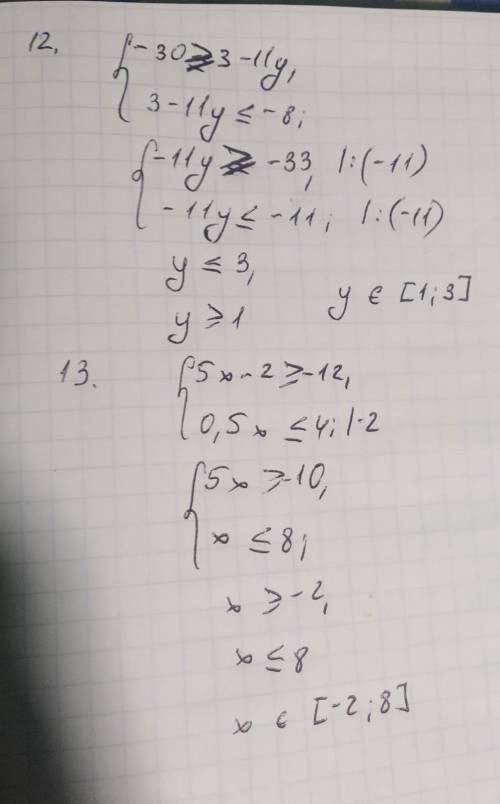 12. { -30 ≥ 3 - 11y,
3 - 11y ≤ -8;
{ -11y ≥ -33, |:(-11)
-11y ≤ -11; |:(-11)
y ≤ 3,
y ≥ 1 y ∈ [1; 3]
13. { 5x - 2 ≥ -12,
0,5x ≤ 4; |·2
{ 5x ≥ -10,
x ≤ 8;
x ≥ -2,
x ≤ 8
x ∈ [-2; 8]